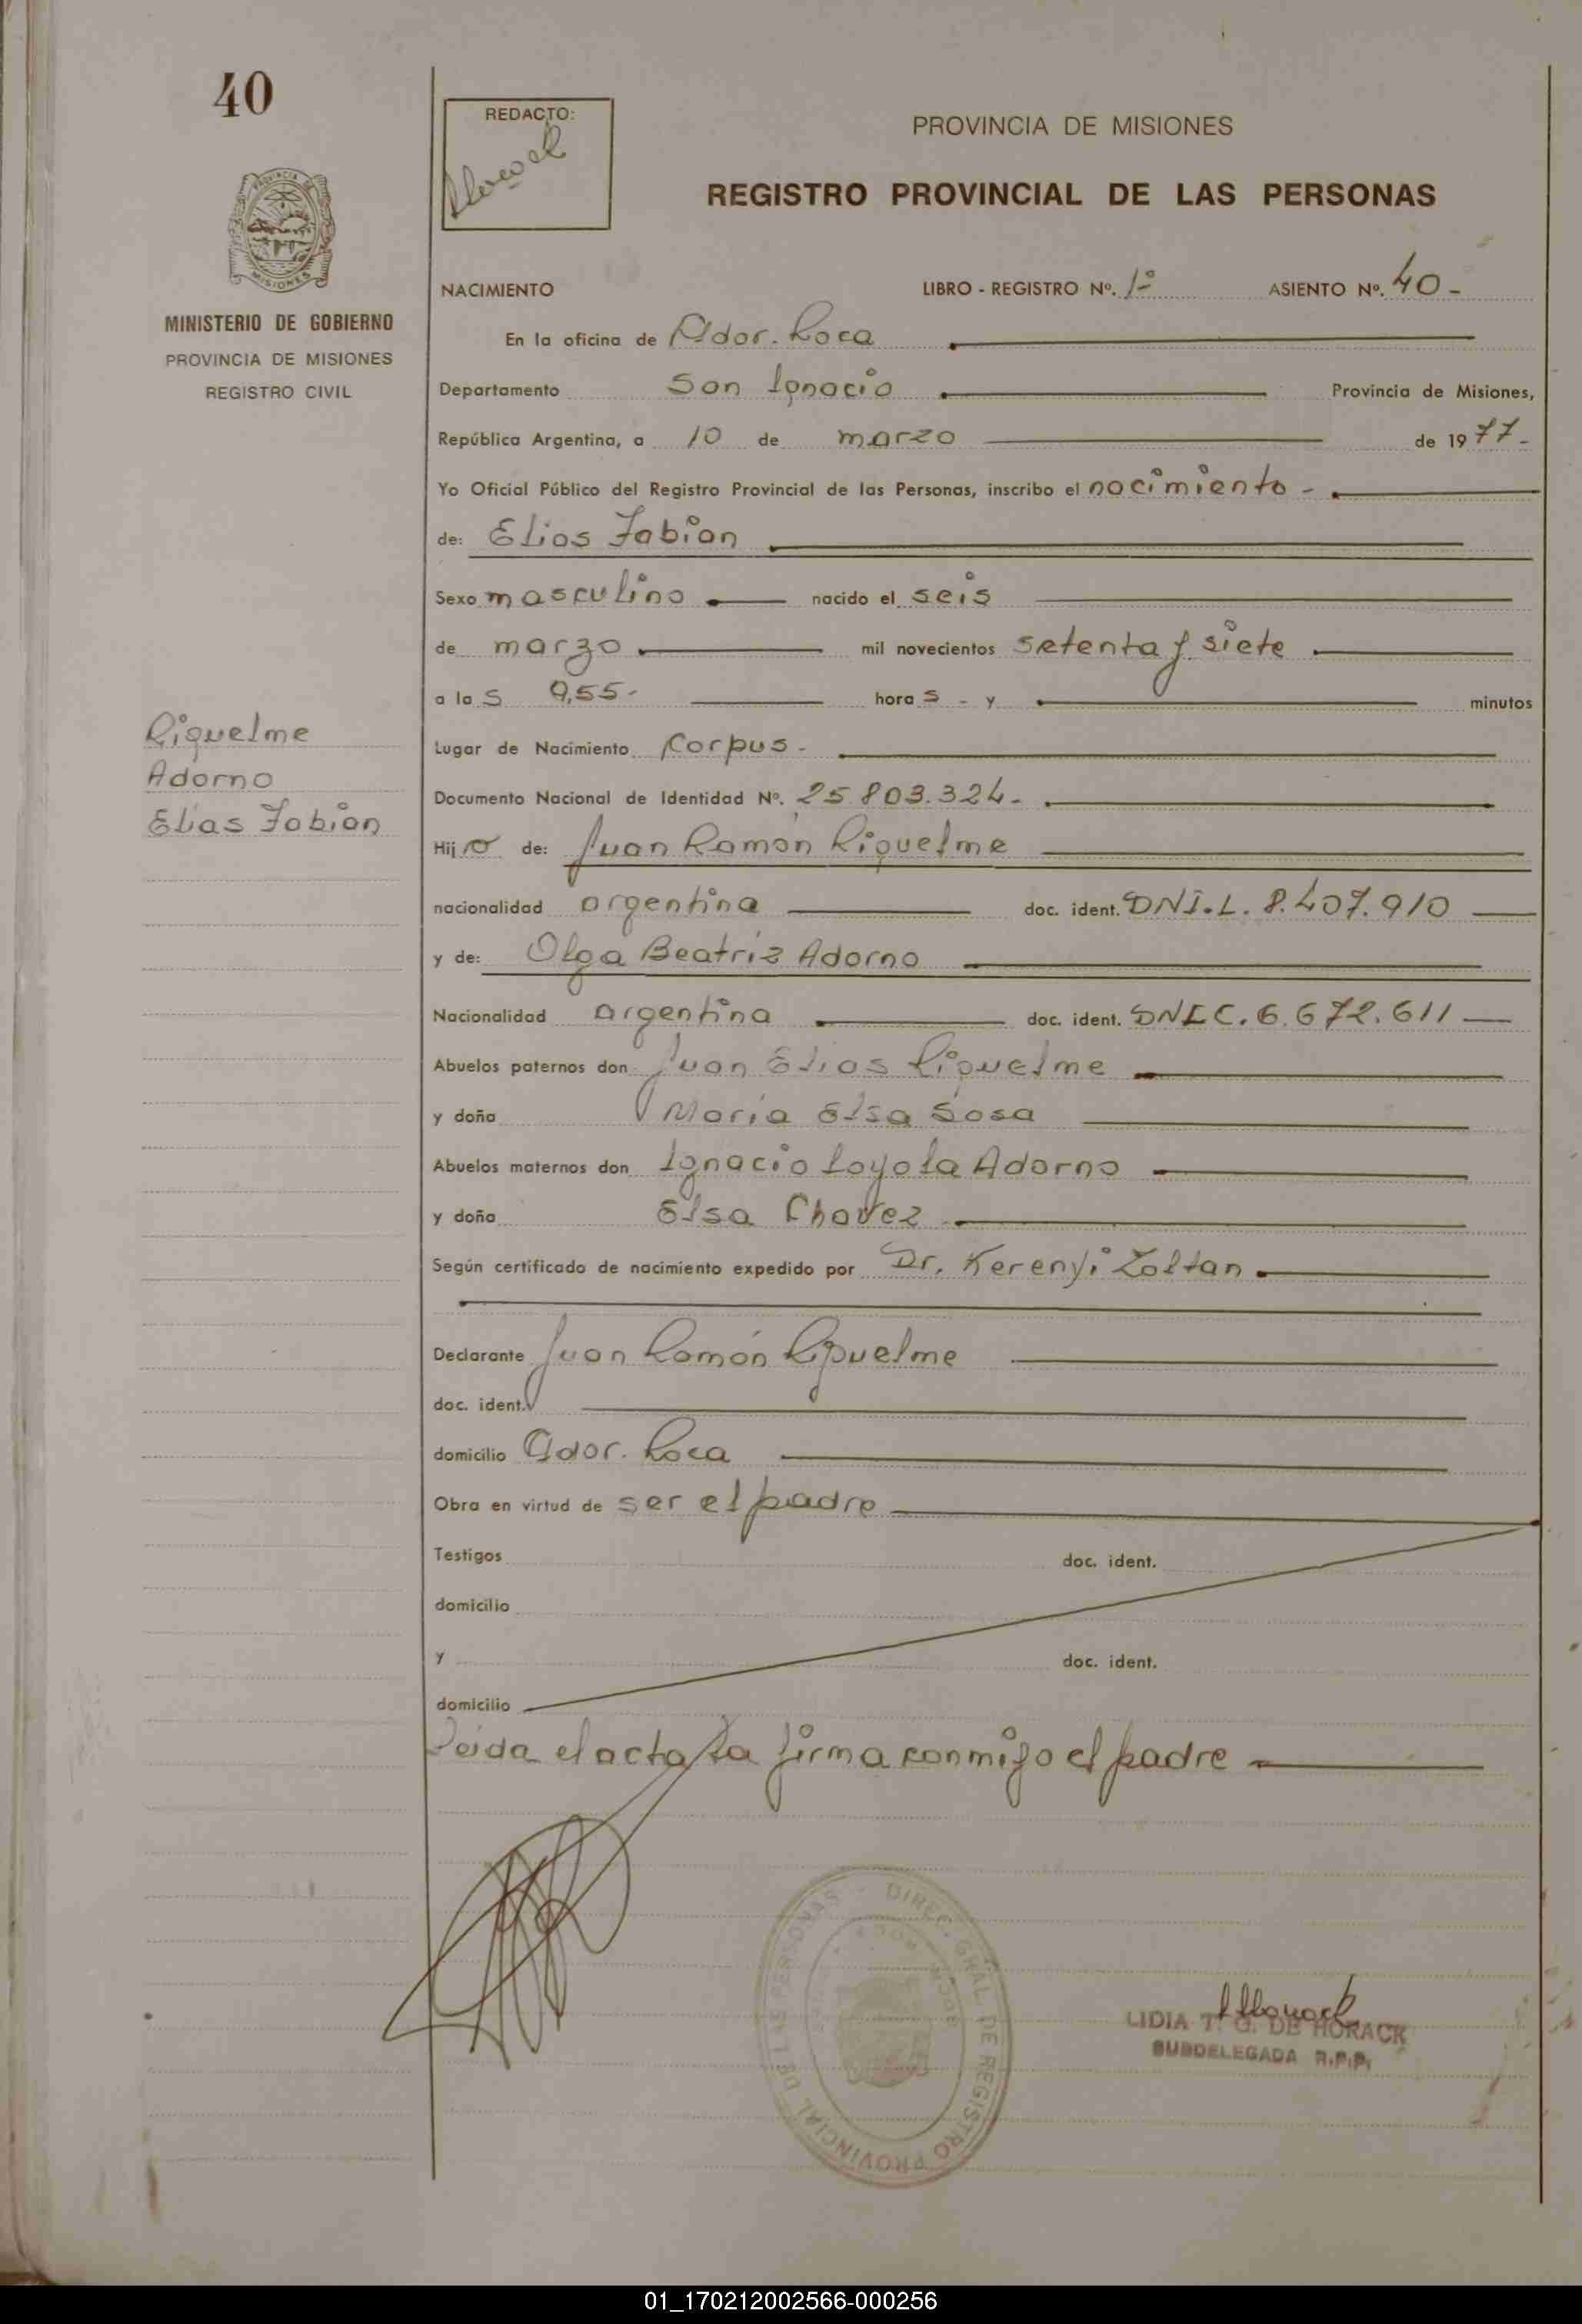 40
REDACTO:
PROVINCIA DE MISIONES
REGISTRO PROVINCIAL DE LAS PERSONAS
PROVINCIA DE MISIONES
MINISTERIO DE GOBIERNO
PROVINCIA DE MISIONES
REGISTRO CIVIL
NACIMIENTO LIBRO - REGISTRO Nº. 1º ASIENTO Nº. 40 -
En la oficina de Gdor. Roca
Departamento San Ignacio Provincia de Misiones,
República Argentina, a 10 de marzo de 1977-
Yo Oficial Público del Registro Provincial de las Personas, inscribo el nacimiento -
de: Elias Fabian
Sexo masculino nacido el seis
de marzo mil novecientos setenta y siete
a las 9,55- horas - y minutos
Riquelme
Adorno
Elias Fabian
Lugar de Nacimiento Corpus -
Documento Nacional de Identidad Nº. 25.803.324-
Hijo de: Juan Ramón Riquelme
nacionalidad argentina doc. ident. DNI.L. 8.407.910
y de: Olga Beatriz Adorno
Nacionalidad argentina doc. ident. DNI.C. 6.672.611
Abuelos paternos don Juan Elias Riquelme
y doña Maria Elsa Sosa
Abuelos maternos don Ignacio Loyola Adorno
y doña Elsa Chavez
Según certificado de nacimiento expedido por Dr. Kerenyi Zoltan
Declarante Juan Ramón Riquelme
doc. ident.
domicilio Gdor. Roca
Obra en virtud de ser el padre
Testigos doc. ident.
domicilio
y doc. ident.
domicilio
Leida el acta la firma conmigo el padre
DIREC. GRAL. DE REGISTRO PROVINCIAL DE LAS PERSONAS
LIDIA T. G. DE HORACK
SUBDELEGADA R.P.P.
01_170212002566-000256